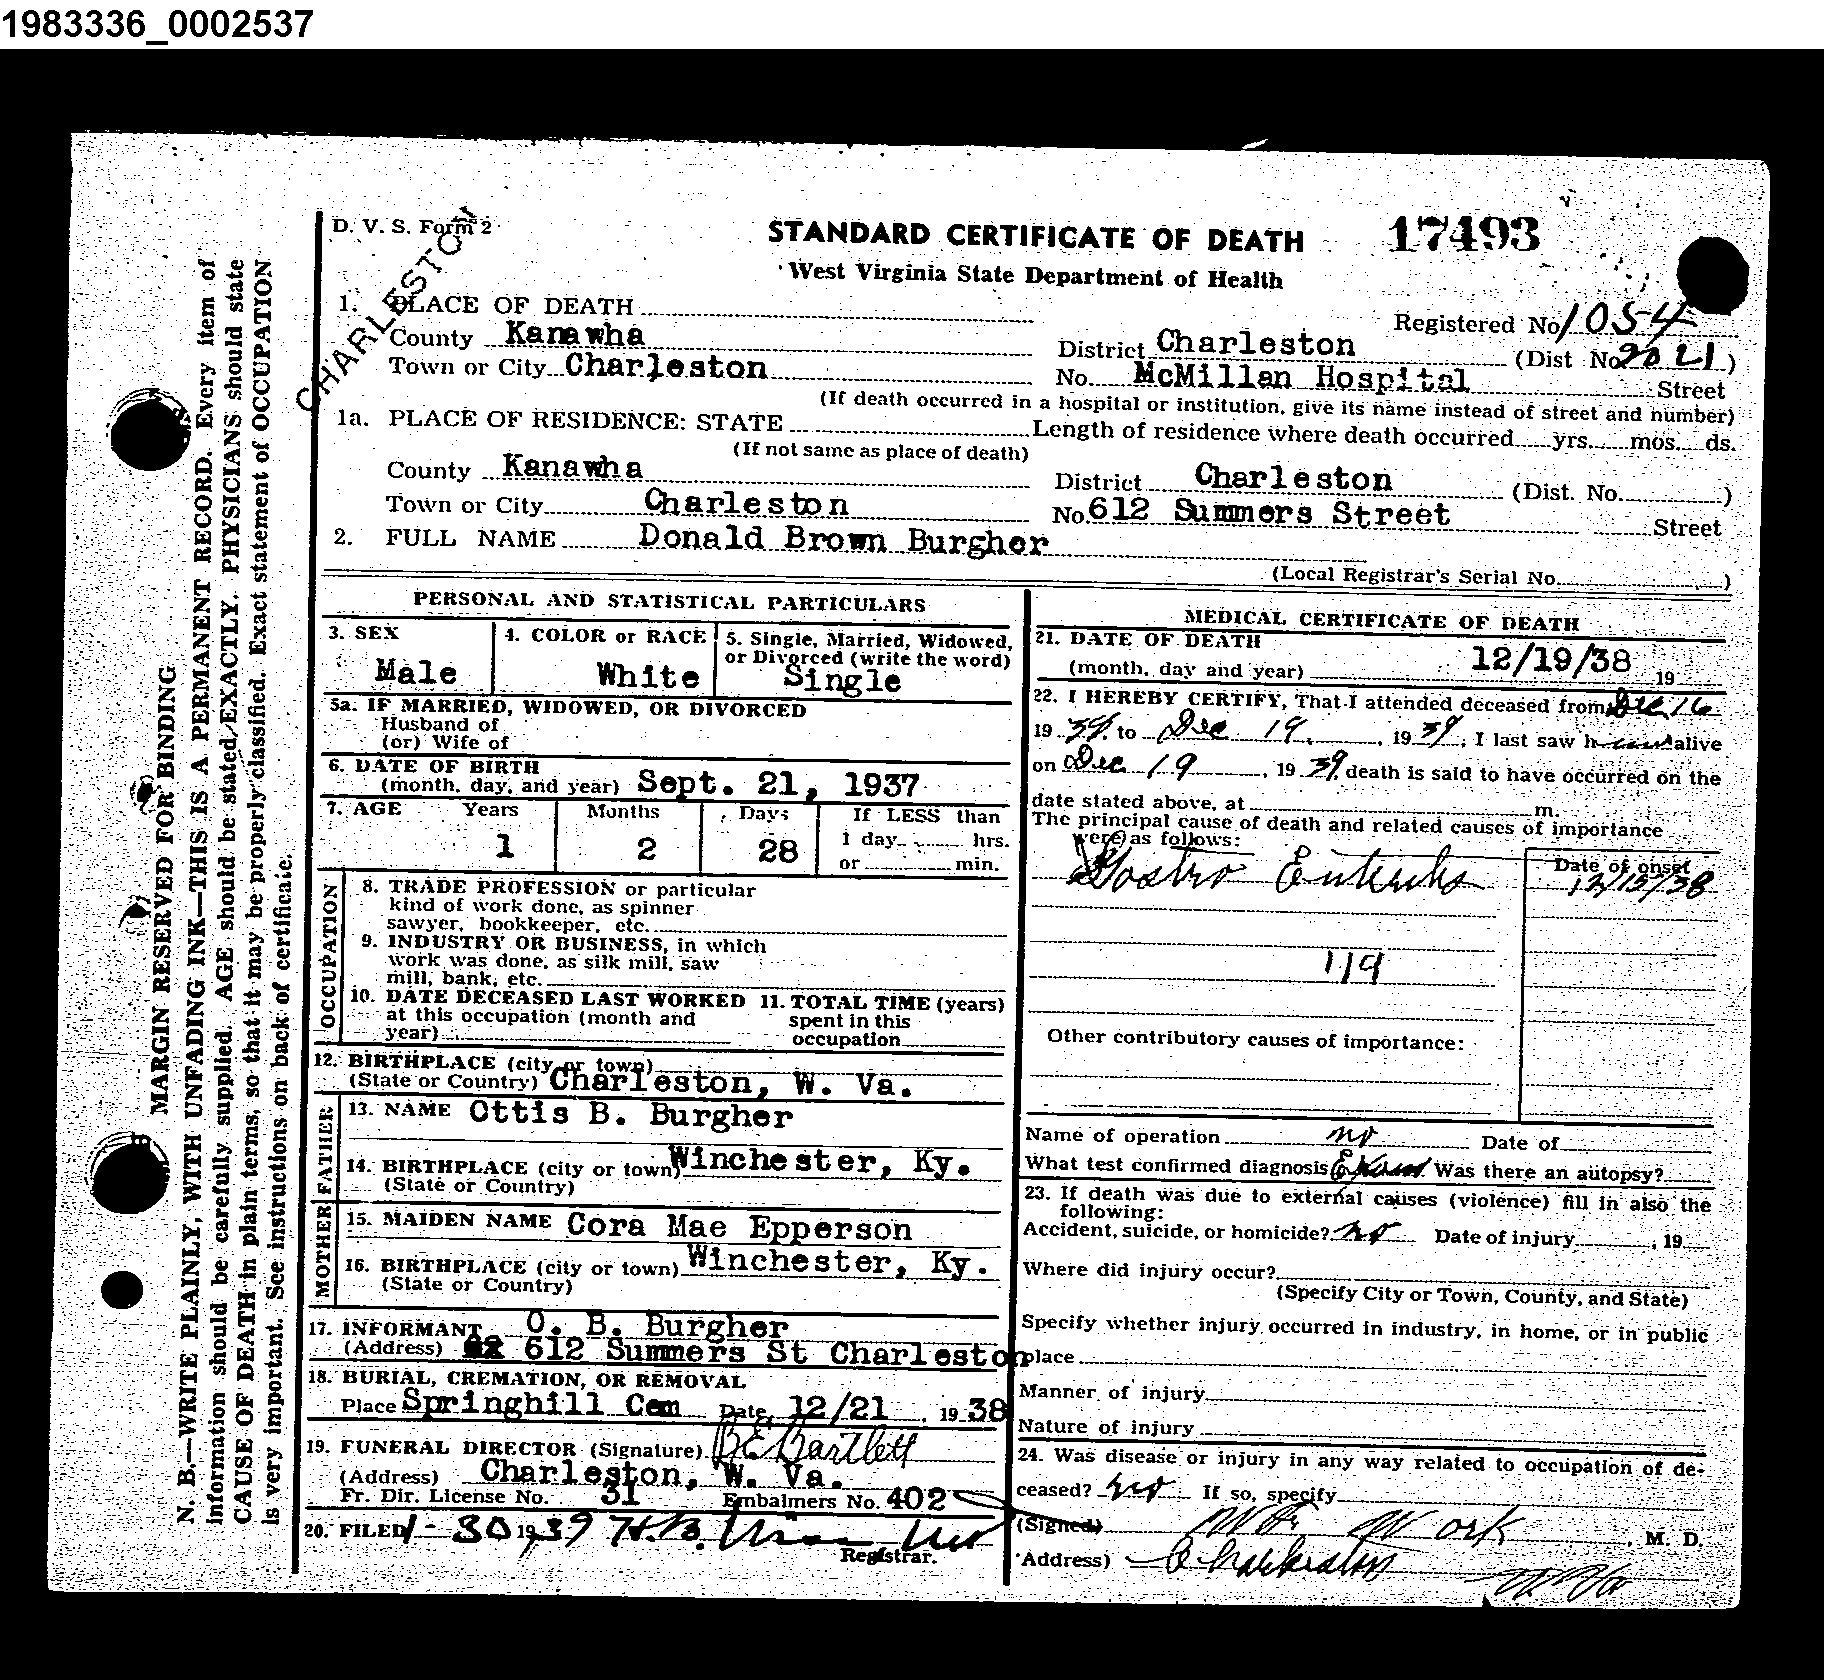 1983336_0002537
D. V. S. Form 2
CHARLESTON
STANDARD CERTIFICATE OF DEATH 17493
West Virginia State Department of Health
1. PLACE OF DEATH
Registered No. 1054
County Kanawha District Charleston (Dist No. 2021)
Town or City Charleston No. McMillan Hospital Street
(If death occurred in a hospital or institution, give its name instead of street and number)
1a. PLACE OF RESIDENCE: STATE Length of residence where death occurred yrs. mos. ds.
(If not same as place of death)
County Kanawha District Charleston (Dist. No. )
Town or City Charleston No. 612 Summers Street Street
2. FULL NAME Donald Brown Burgher
(Local Registrar's Serial No. )
PERSONAL AND STATISTICAL PARTICULARS
3. SEX Male
4. COLOR or RACE White
5. Single, Married, Widowed, or Divorced (write the word) Single
5a. IF MARRIED, WIDOWED, OR DIVORCED
Husband of
(or) Wife of
6. DATE OF BIRTH
(month, day, and year) Sept. 21, 1937
7. AGE Years Months Days If LESS than
1 2 28 1 day hrs.
or min.
OCCUPATION
8. TRADE PROFESSION or particular
kind of work done, as spinner
sawyer, bookkeeper, etc.
9. INDUSTRY OR BUSINESS, in which
work was done, as silk mill, saw
mill, bank, etc.
10. DATE DECEASED LAST WORKED
at this occupation (month and
year)
11. TOTAL TIME (years)
spent in this
occupation
12. BIRTHPLACE (city or town)
(State or Country) Charleston, W. Va.
FATHER
13. NAME Ottis B. Burgher
14. BIRTHPLACE (city or town) Winchester, Ky.
(State or Country)
MOTHER
15. MAIDEN NAME Cora Mae Epperson
16. BIRTHPLACE (city or town) Winchester, Ky.
(State or Country)
17. INFORMANT O. B. Burgher
(Address) 612 Summers St Charleston
18. BURIAL, CREMATION, OR REMOVAL
Place Springhill Cem Date 12/21, 1938
19. FUNERAL DIRECTOR (Signature) B E Bartlett
(Address) Charleston, W. Va.
Fr. Dir. License No. 31 Embalmers No. 402
20. FILED 1-30 1939 H.B.
Registrar.
MEDICAL CERTIFICATE OF DEATH
21. DATE OF DEATH
(month, day and year) 12/19/38 19
22. I HEREBY CERTIFY, That I attended deceased from Dec. 16
19 39, to Dec 19, 1939, I last saw h alive
on Dec 19, 1939, death is said to have occurred on the
date stated above, at m.
The principal cause of death and related causes of importance
were as follows:
Date of onset
Gastro Enteritis 12/15/38
119
Other contributory causes of importance:
Name of operation no Date of
What test confirmed diagnosis Exam Was there an autopsy?
23. If death was due to external causes (violence) fill in also the
following:
Accident, suicide, or homicide? no Date of injury , 19
Where did injury occur?
(Specify City or Town, County, and State)
Specify whether injury occurred in industry, in home, or in public
place
Manner of injury
Nature of injury
24. Was disease or injury in any way related to occupation of de-
ceased? no If so, specify
(Signed) Work, M. D.
(Address) Charleston
MARGIN RESERVED FOR BINDING
N. B.—WRITE PLAINLY, WITH UNFADING INK—THIS IS A PERMANENT RECORD. Every item of
information should be carefully supplied. AGE should be stated EXACTLY. PHYSICIANS should state
CAUSE OF DEATH in plain terms, so that it may be properly classified. Exact statement of OCCUPATION
is very important. See instructions on back of certificate.